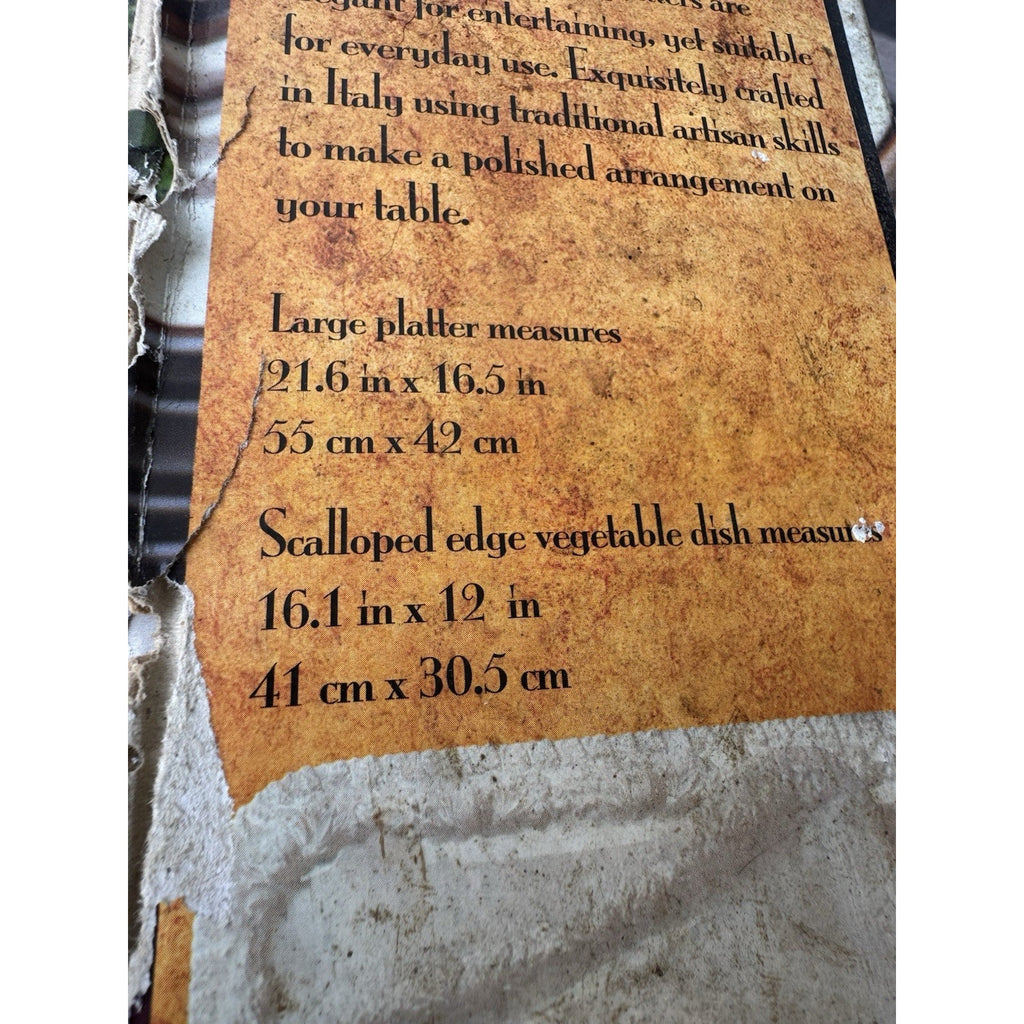 are
elegant for entertaining, yet suitable
for everyday use. Exquisitely crafted
in Italy using traditional artisan skills
to make a polished arrangement on
your table.
Large platter measures
21.6 in x 16.5 in
55 cm x 42 cm
Scalloped edge vegetable dish measures
16.1 in x 12 in
41 cm x 30.5 cm